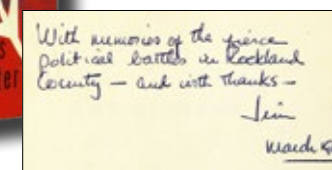 With memories of the fierce
political battles in Rockland
County — and with thanks —
Jim
March